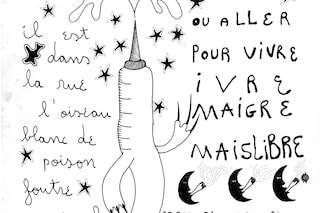 il est
dans
la rue
l'oiseau
blanc de
poison
foutre
OU ALLER
POUR VIVRE
IVRE
MAIGRE
MAIS LIBRE